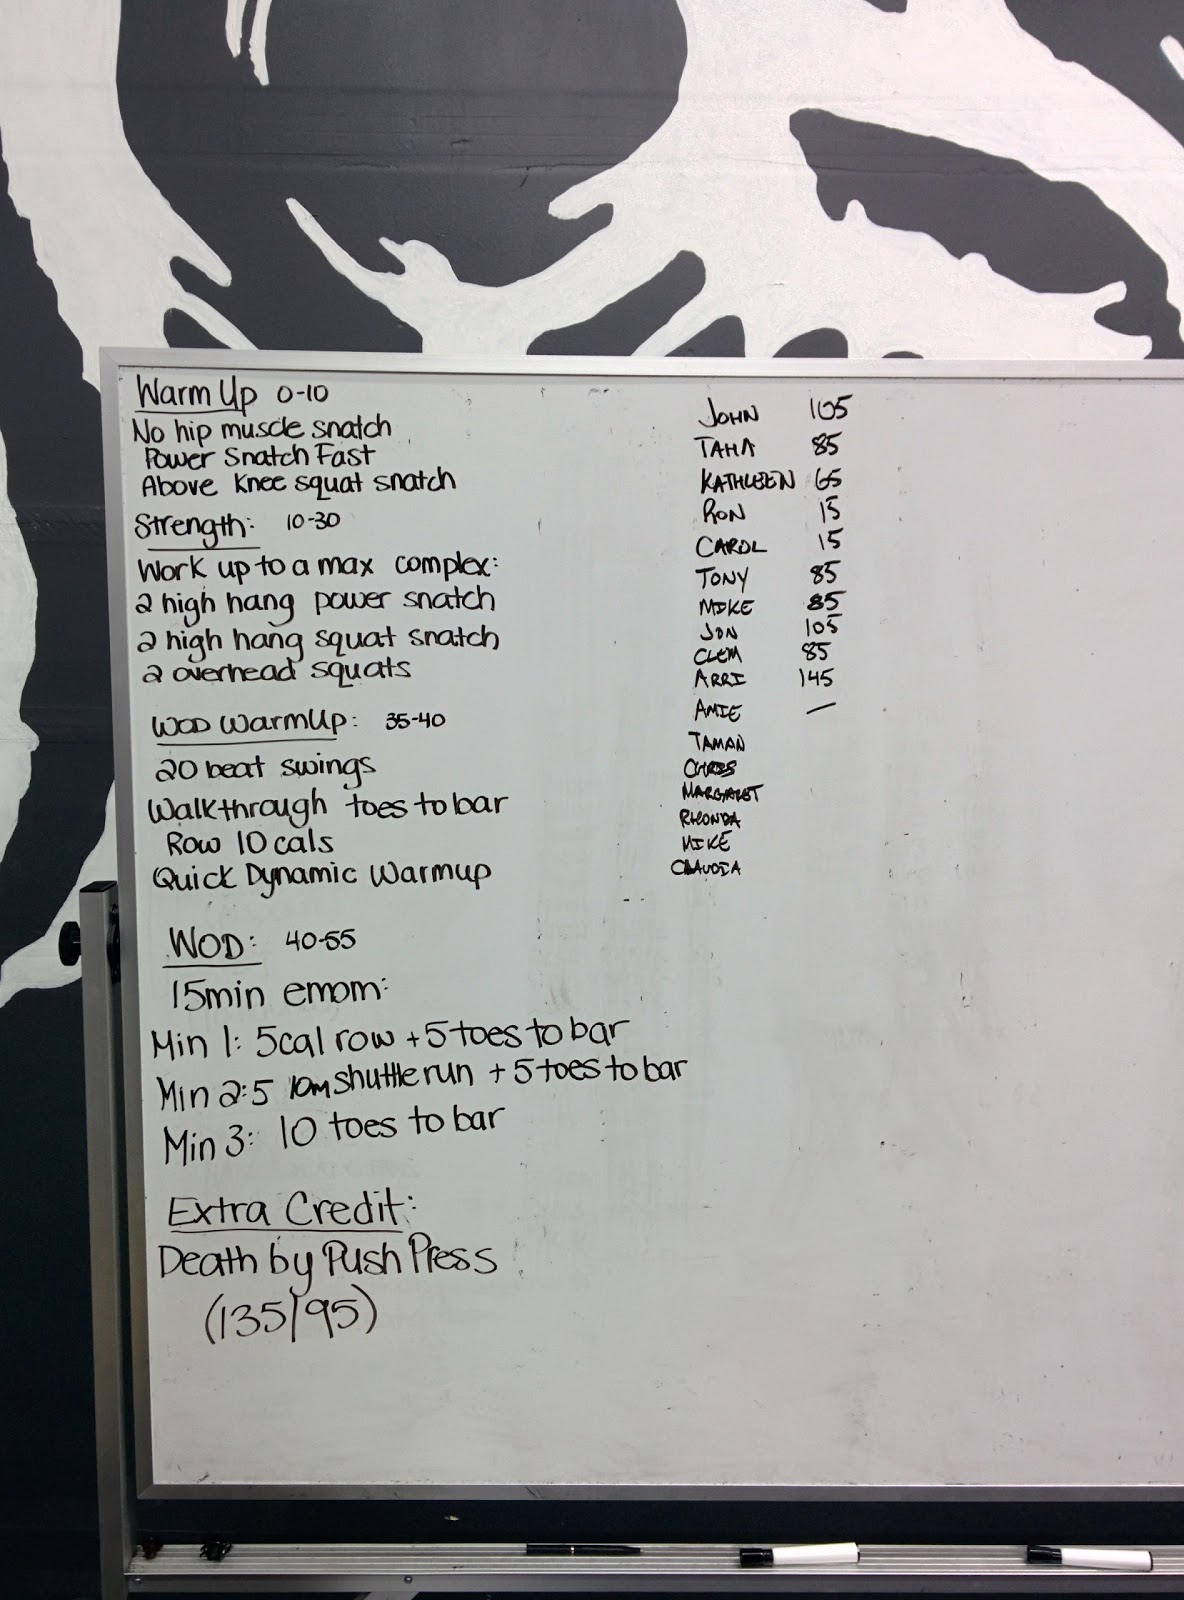 Warm Up 0-10
No hip muscle snatch
Power Snatch Fast
Above Knee squat snatch
Strength: 10-30
Work up to a max complex:
2 high hang power snatch
2 high hang squat snatch
2 overhead squats
WOD WarmUp: 35-40
20 beat swings
Walkthrough toes to bar
Row 10 cals
Quick Dynamic Warmup
WOD: 40-55
15min emom:
Min 1: 5cal row + 5 toes to bar
Min 2: 5 10m shuttle run + 5 toes to bar
Min 3: 10 toes to bar
Extra Credit:
Death by Push Press
(135/95)
JOHN 105
TAHA 85
KATHLEEN 65
RON 15
CAROL 15
TONY 85
MIKE 85
JON 105
CLEM 85
ARRI 145
AMIE —
TAMAN
CHRIS
MARGARET
RHONDA
MIKE
CLAUDIA